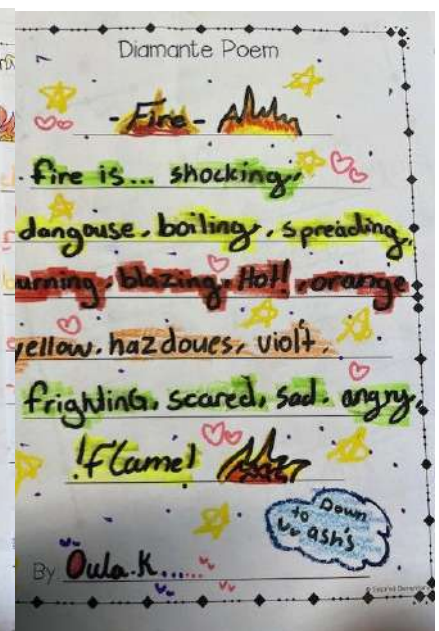 Diamante Poem
- Fire -
fire is... shocking,
dangouse, boiling, spreading,
urning, blazing, Hot!, orange
yellow, hazdoues, violt,
frighting, scared, sad, angry,
!flame!
Down
to
ash's
By Oula.K.....